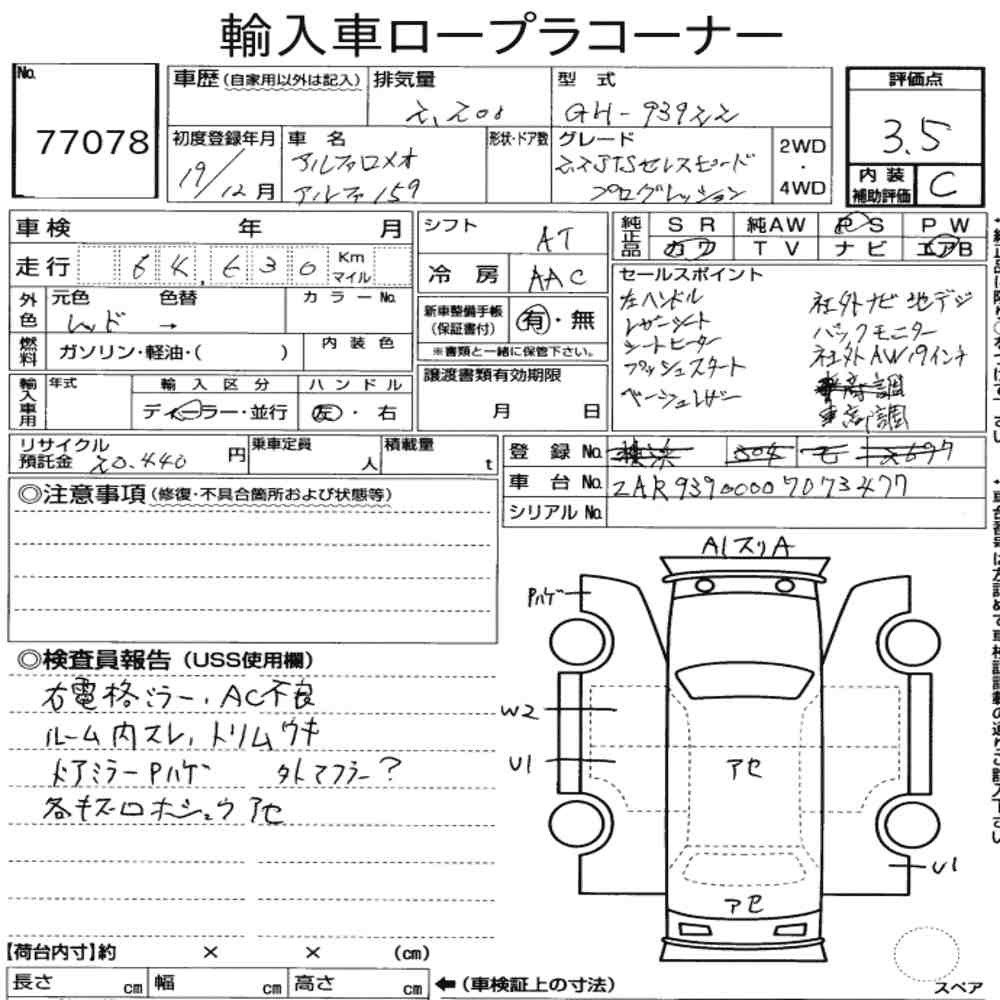 輸入車ロープラコーナー
No.
77078
車歴(自家用以外は記入)
排気量
2,200
型 式
GH-93922
評価点
3.5
初度登録年月
19/12月
車 名
アルファロメオ
アルファ159
形状・ドア数
グレード
2.2JTSセレスピード
プログレッション
2WD
・
4WD
内 装
補助評価
C
車検 年 月
走行 64,630 Km
マイル
シフト
AT
冷 房
AAC
純正品
SR 純AW PS PW
カワ TV ナビ エアB
外色
元色 色替
レッド →
カラーNo.
燃料
ガソリン・軽油・( )
内 装 色
新車整備手帳
(保証書付)
有・無
※書類と一緒に保管下さい。
セールスポイント
左ハンドル
レザーシート
シートヒーター
プッシュスタート
ベージュレザー
社外ナビ 地デジ
バックモニター
社外AW19インチ
車高調
輸入車用
年式
輸 入 区 分
ディーラー・並行
ハ ン ド ル
左・右
譲渡書類有効期限
月 日
リサイクル
預託金
20.440円
乗車定員
人
積載量
t
登 録 No.
横浜 304 モ 2697
車 台 No.
ZAR93900007073477
シリアル No.
◎注意事項(修復・不具合箇所および状態等)
◎検査員報告(USS使用欄)
右電格ミラー,AC不良
ルーム内スレ,トリムウキ
ドアミラーPハゲ 外マフラー?
各キズロホシュウアセ
A1スリA
Pハゲ
W2
U1
アセ
アセ
U1
【荷台内寸】約 × × (cm)
長さ cm 幅 cm 高さ cm
←(車検証上の寸法)
スペア